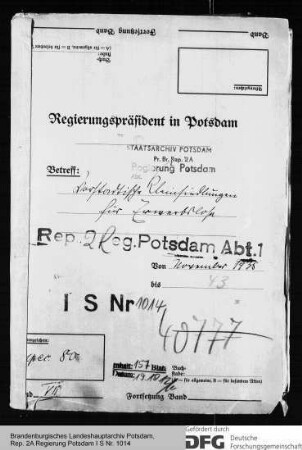 Fortsetzung Band
Regierungspräsident in Potsdam
STAATSARCHIV POTSDAM
Pr. Br. Rep. 2A
Regierung Potsdam
Betreff:
Vorstädtische Kleinsiedlungen
für Erwerbslose
Rep. 2 Reg. Potsdam Abt. 1
Von November 19
bis 43
I S Nr 1014
40777
Inhalt: 157 Blatt
Datum:
VII
Fortsetzung Band
Brandenburgisches Landeshauptarchiv Potsdam,
Rep. 2A Regierung Potsdam I S Nr. 1014
Gefördert durch
DFG Deutsche
Forschungsgemeinschaft